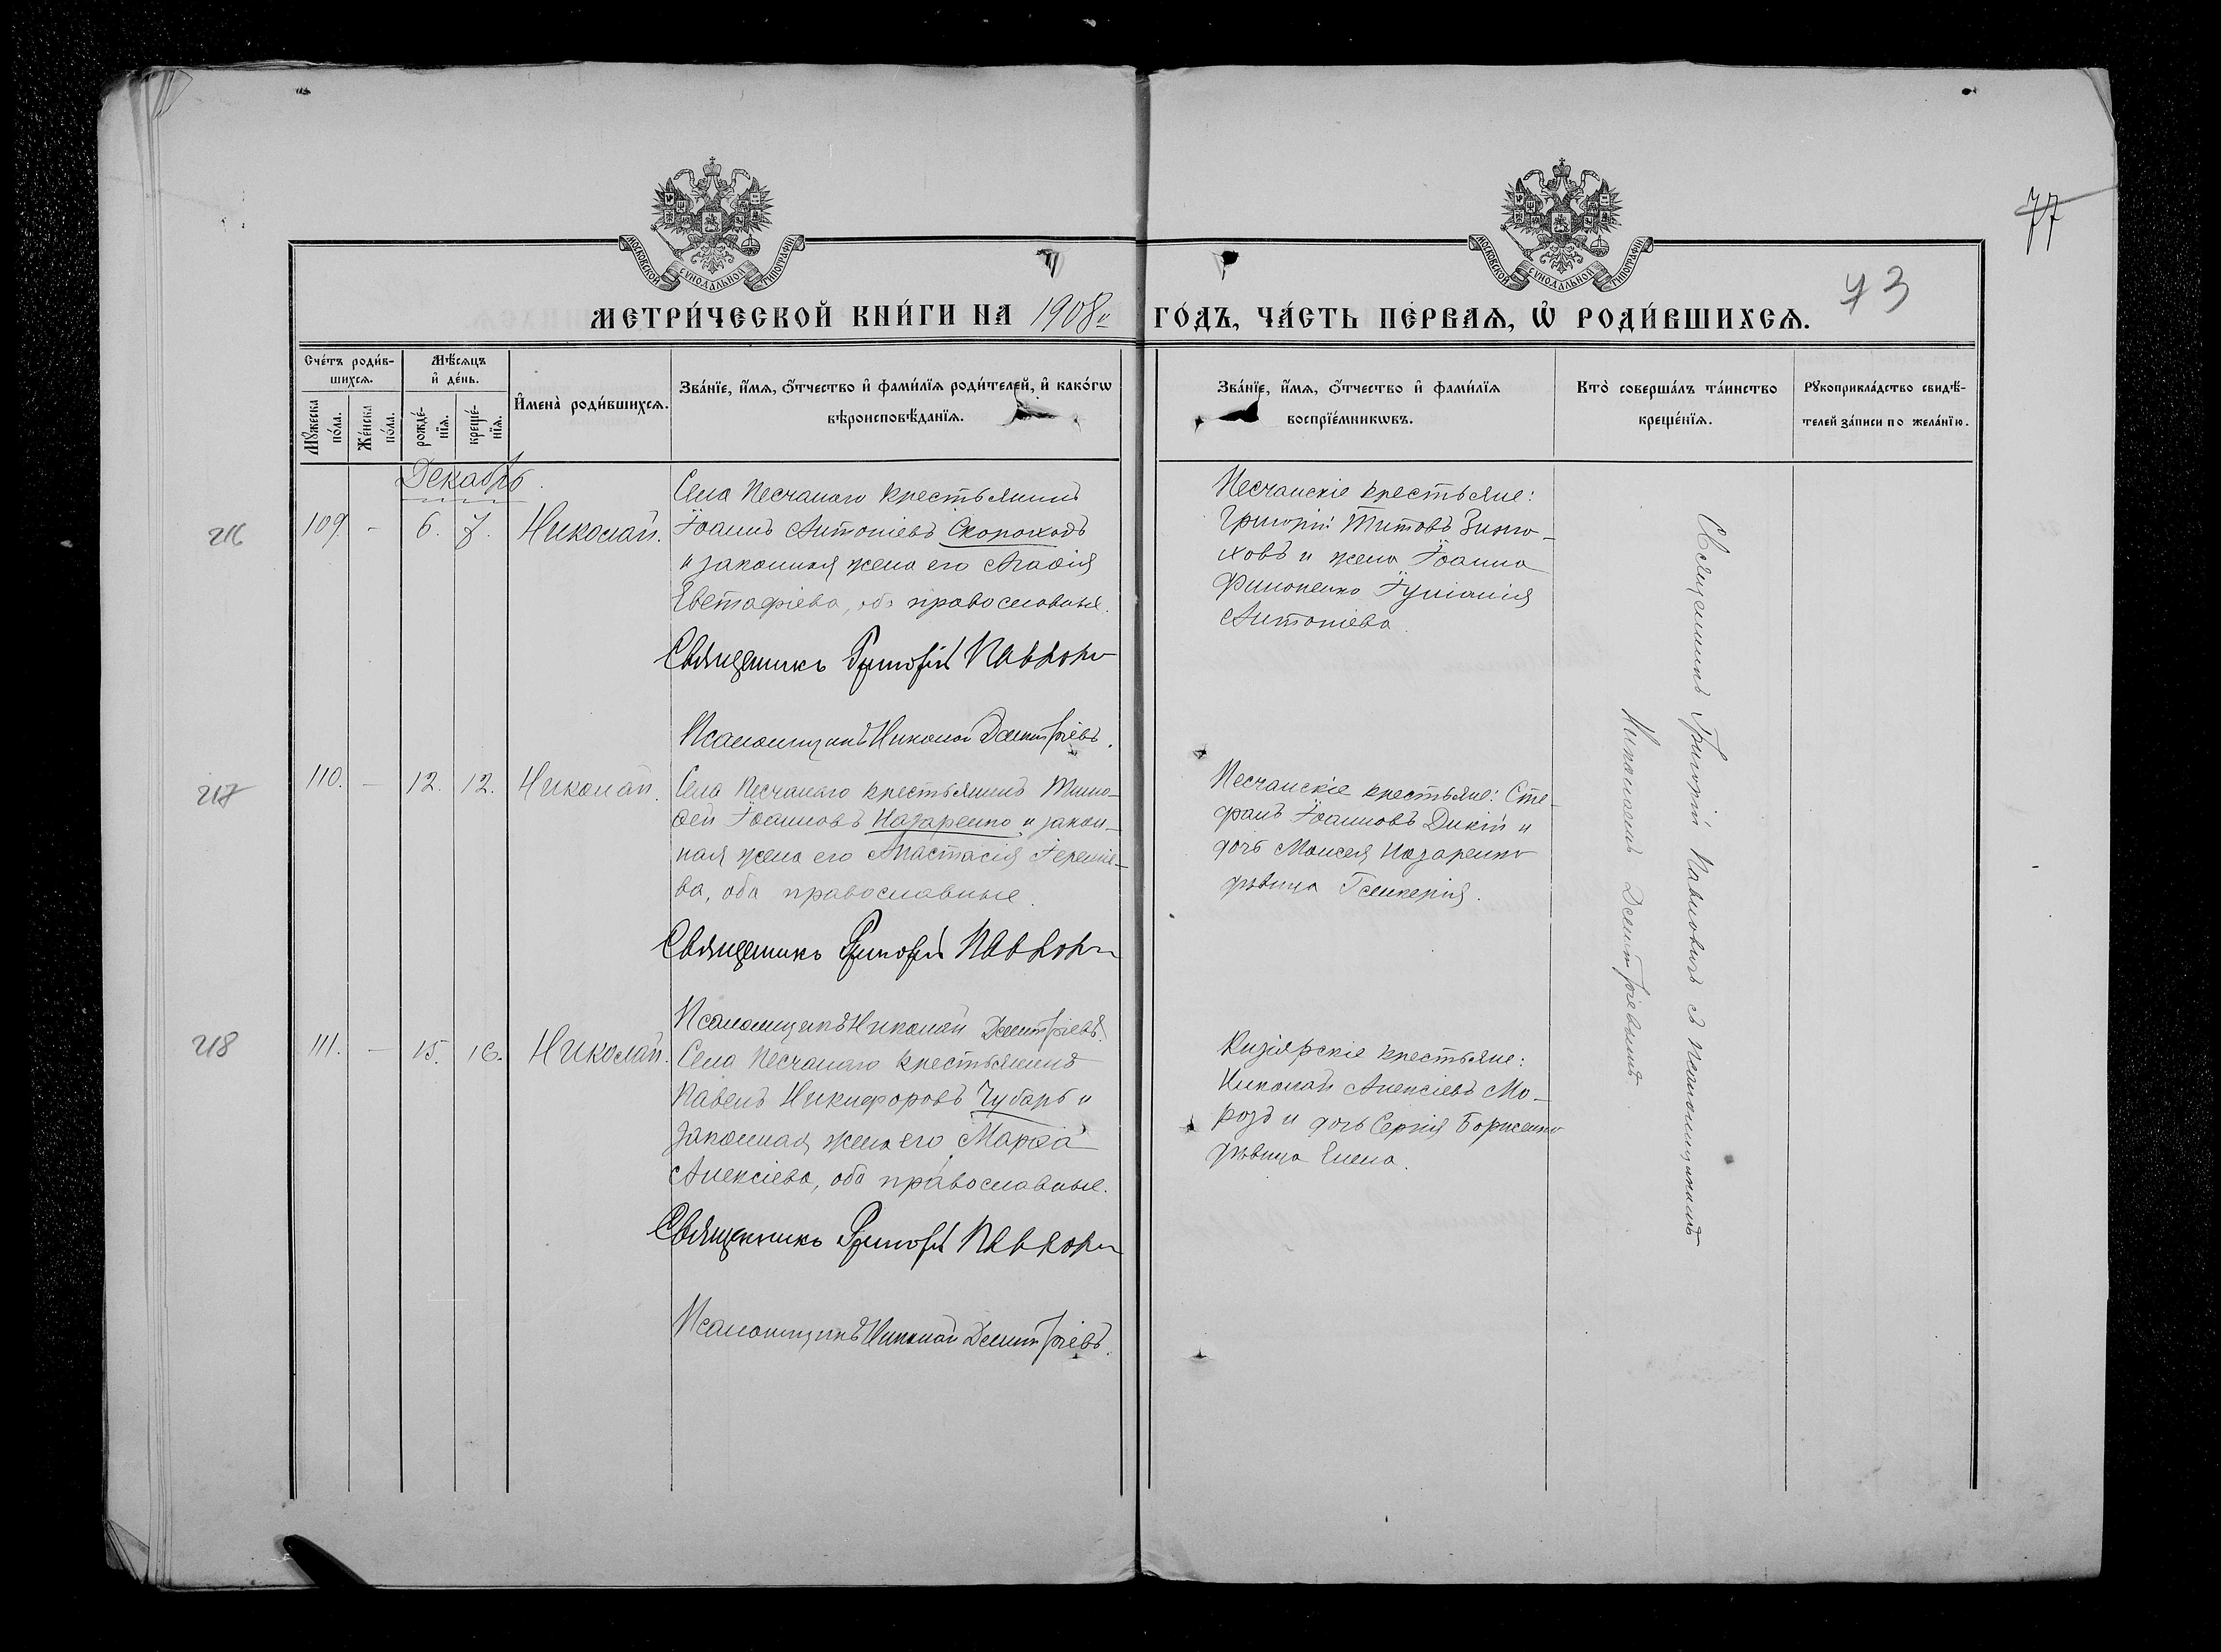 77
73
МОСКОВСКОЙ СѴНОДАЛЬНОЙ ТИПОГРАФІИ
МОСКОВСКОЙ СѴНОДАЛЬНОЙ ТИПОГРАФІИ
МЕТРИ́ЧЕСКОЙ КНИ́ГИ НА 1908 ГО́ДЪ, ЧА́СТЬ ПЕ́РВАѦ, Ѡ҆ РОДИ́ВШИХСѦ.
Сче́тъ роди́в-
шихсѧ.
Мꙋ́жеска по́ла.
Же́нска по́ла.
Мѣ́сѧцъ
и҆ де́нь.
рожде́-
нїѧ.
креще́-
нїѧ.
И҆мена̀ роди́вшихсѧ.
Зва́нїе, и҆́мѧ, ѻ҆́тчество и҆ фами́лїѧ роди́телей, и҆ како́гѡ
вѣроисповѣ́данїѧ.
Зва́нїе, и҆́мѧ, ѻ҆́тчество и҆ фами́лїѧ
воспрїе́мникѡвъ.
Кто̀ соверша́лъ та́инство
креще́нїѧ.
Рꙋкоприкла́дство свидѣ́-
телей за́писи по жела́нїю.
Декабрь
216
109. - 6. 7. Николай.
Села Песчанаго крестьянинъ
Іоаннъ Антоніевъ Скороходъ
и законная жена его Агаѳія
Евстафіева, оба православные.
Священникъ Григорій Павлович
Псаломщикъ Николай Димитріевъ.
Песчанскіе крестьяне:
Григорій Титовъ
и жена Іоанна
Филоненко Іуліанія
Антоніева
217
110. - 12. 12. Николай.
Села Песчанаго крестьянинъ Тимо-
ѳей Іоанновъ Назаренко и закон-
ная жена его Анастасія Іереміе-
ва, оба православные.
Священникъ Григорій Павлович
Псаломщикъ Николай Димитріевъ.
Песчанскіе крестьяне: Сте-
фанъ Іоанновъ Дикій и
дочь Моисея Назаренко
дѣвица Гликерія.
218
111. - 15. 16. Николай.
Села Песчанаго крестьянинъ
Павелъ Никифоровъ Чубарь и
законная жена его Марѳа
Алексіева, оба православные.
Священникъ Григорій Павлович
Псаломщикъ Николай Димитріевъ.
Кизіярскіе крестьяне:
Николай Алексіевъ Мо-
розъ и дочь Сергія Борисенко
дѣвица Елена.
Священникъ Григорій Павловичъ съ псаломщикомъ
Николаемъ Димитріевымъ.